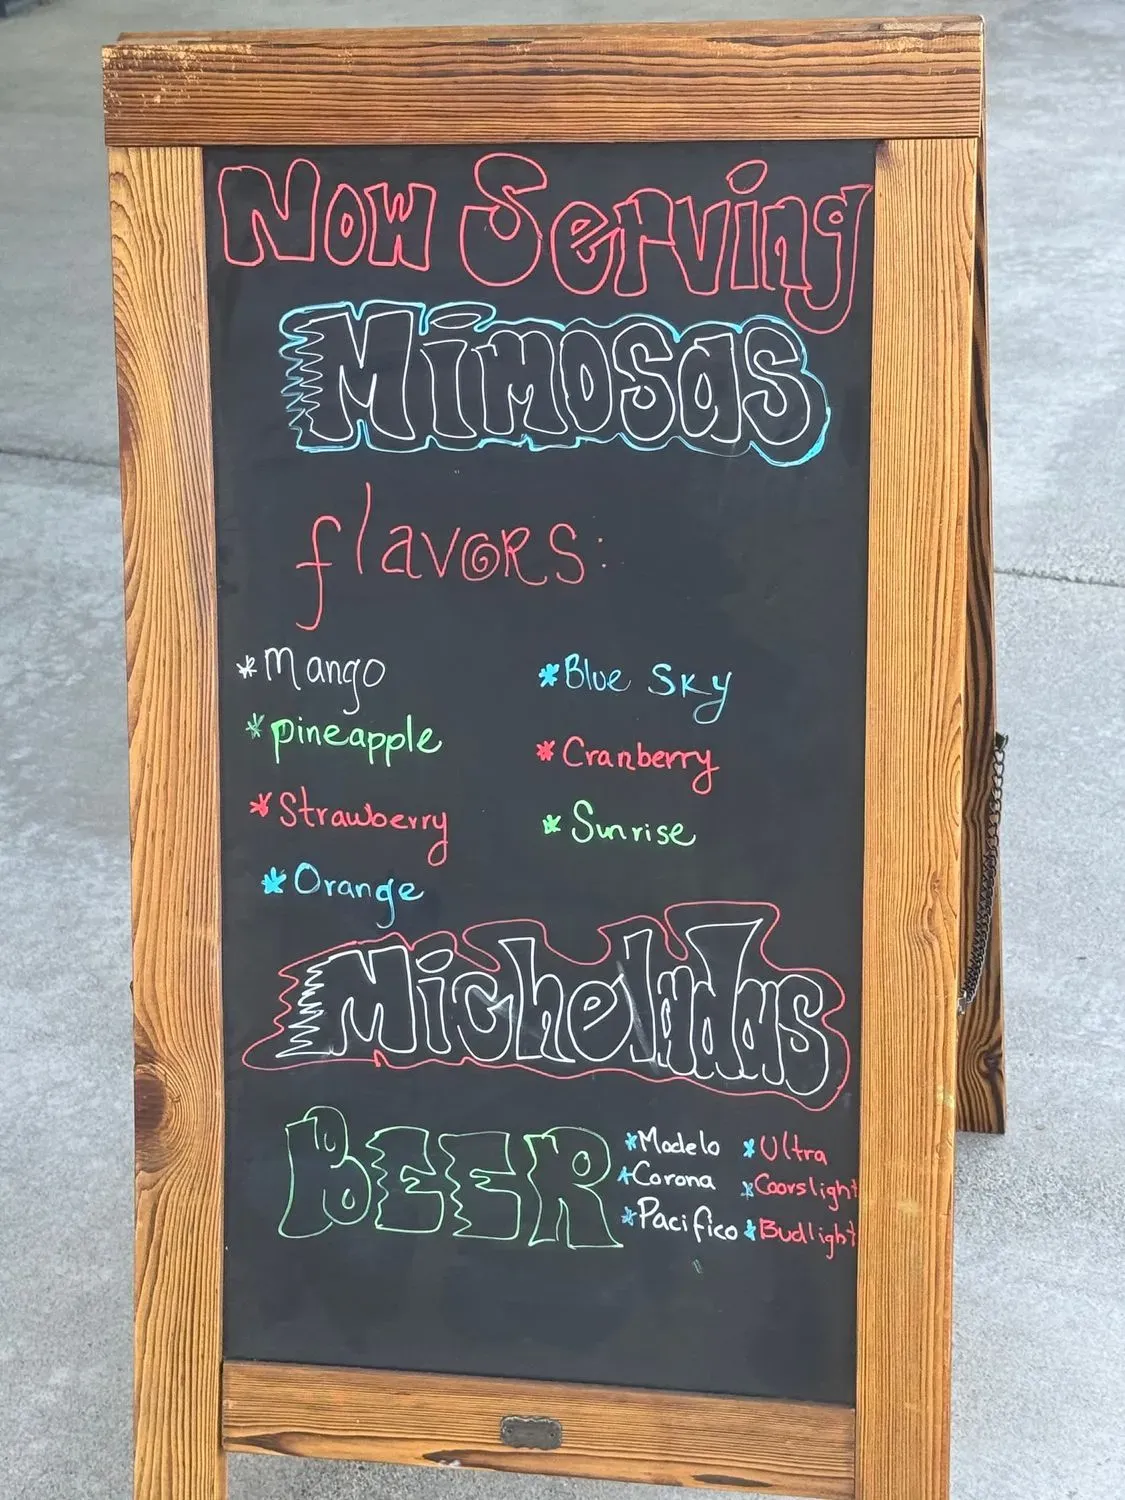 Now Serving
Mimosas
flavors:
*Mango
*pineapple
*Strawberry
*Orange
*Blue Sky
*Cranberry
*Sunrise
Micheladas
BEER
*Modelo
*Corona
*Pacifico
*Ultra
*Coorslight
*Budlight